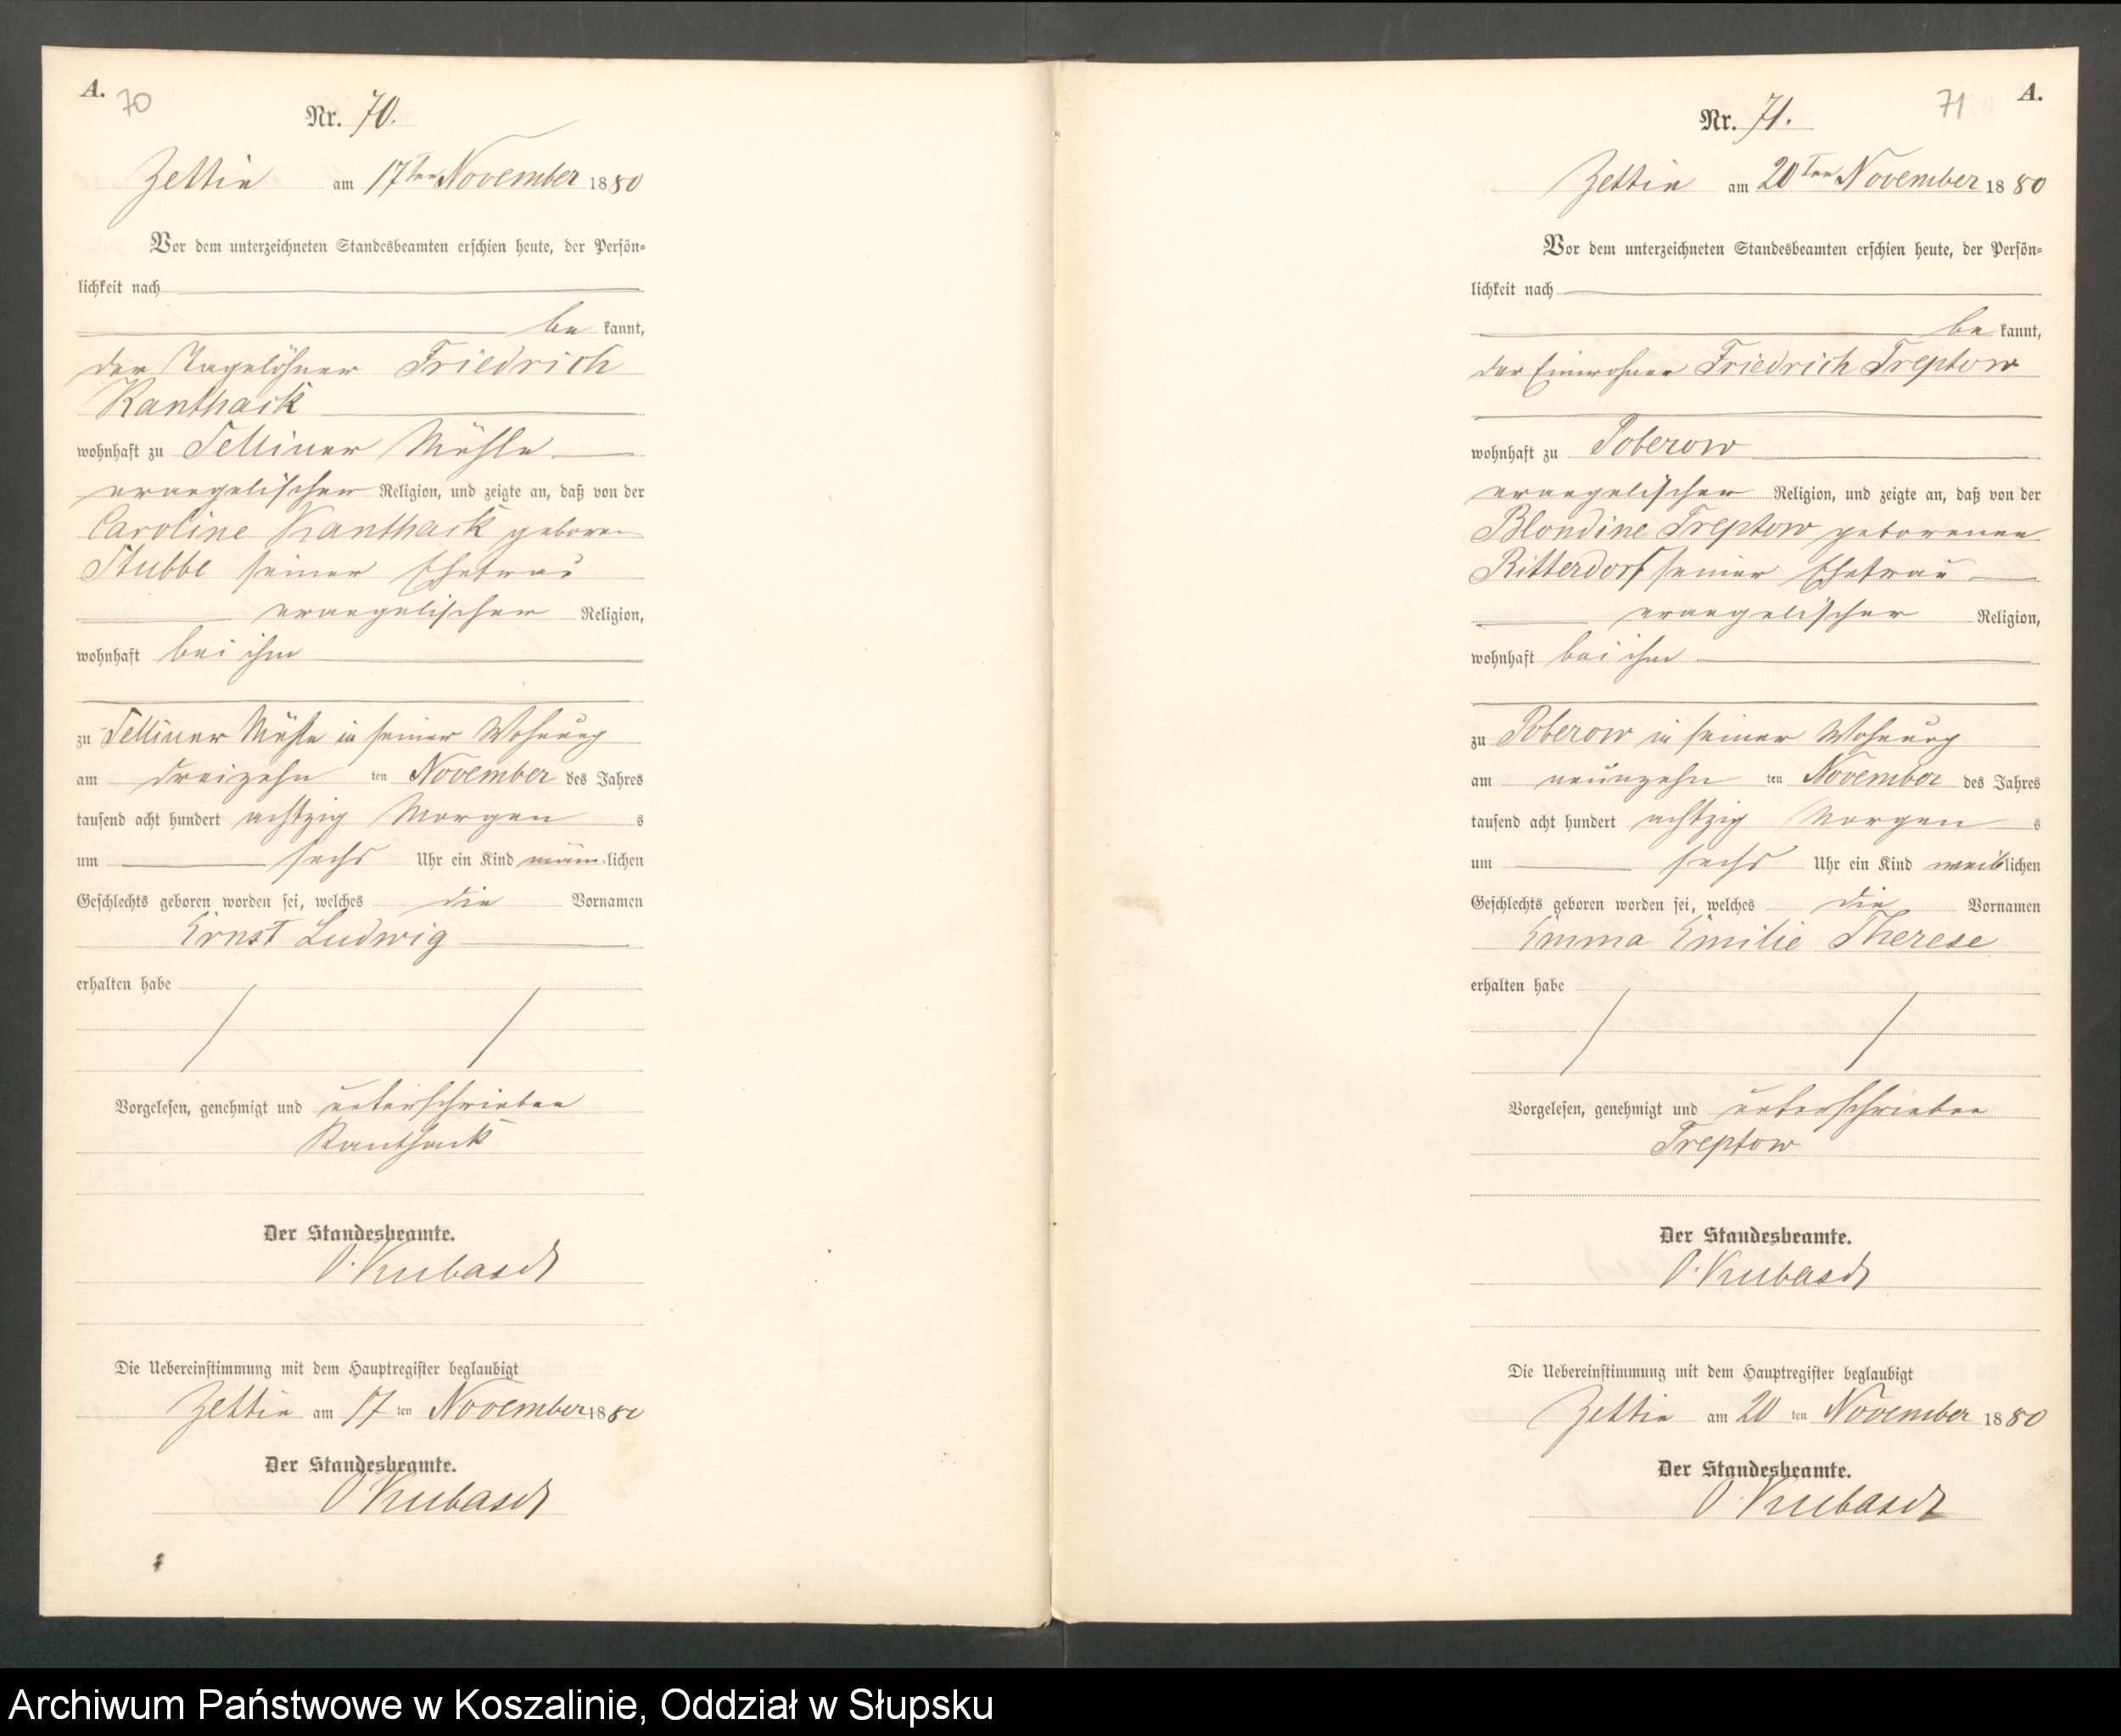 A.
70
Nr. 70.
Zettin am 17ten November 1880
Vor dem unterzeichneten Standesbeamten erschien heute, der Persön-
lichkeit nach
be kannt,
der Tagelöhner Friedrich
Kanthack
wohnhaft zu Mühle
evangelischer Religion, und zeigte an, daß von der
Caroline Kanthack geboren
Stubbe seiner Ehefrau
evangelischer Religion,
wohnhaft bei ihm
zu Mühle in seiner Wohnung
am dreizehn ten November des Jahres
tausend acht hundert achtzig Morgen s
um sechs Uhr ein Kind männlichen
Geschlechts geboren worden sei, welches die Vornamen
Ernst Ludwig
erhalten habe
Vorgelesen, genehmigt und unterschrieben
Kanthack
Der Standesbeamte.
Die Uebereinstimmung mit dem Hauptregister beglaubigt
Zettin am 17 ten November 1880
Der Standesbeamte.
A.
71
Nr. 71.
Zettin am 20ten November 1880
Vor dem unterzeichneten Standesbeamten erschien heute, der Persön-
lichkeit nach
be kannt,
der Einwohner Friedrich Treptow
wohnhaft zu Poberow
evangelischer Religion, und zeigte an, daß von der
Blondine Treptow geborenen
Ritterdorf seiner Ehefrau
evangelischer Religion,
wohnhaft bei ihm
zu Poberow in seiner Wohnung
am neunzehn ten November des Jahres
tausend acht hundert achtzig Morgen s
um sechs Uhr ein Kind weiblichen
Geschlechts geboren worden sei, welches die Vornamen
Emma Emilie Therese
erhalten habe
Vorgelesen, genehmigt und unterschrieben
Treptow
Der Standesbeamte.
Die Uebereinstimmung mit dem Hauptregister beglaubigt
Zettin am 20 ten November 1880
Der Standesbeamte.
Archiwum Państwowe w Koszalinie, Oddział w Słupsku